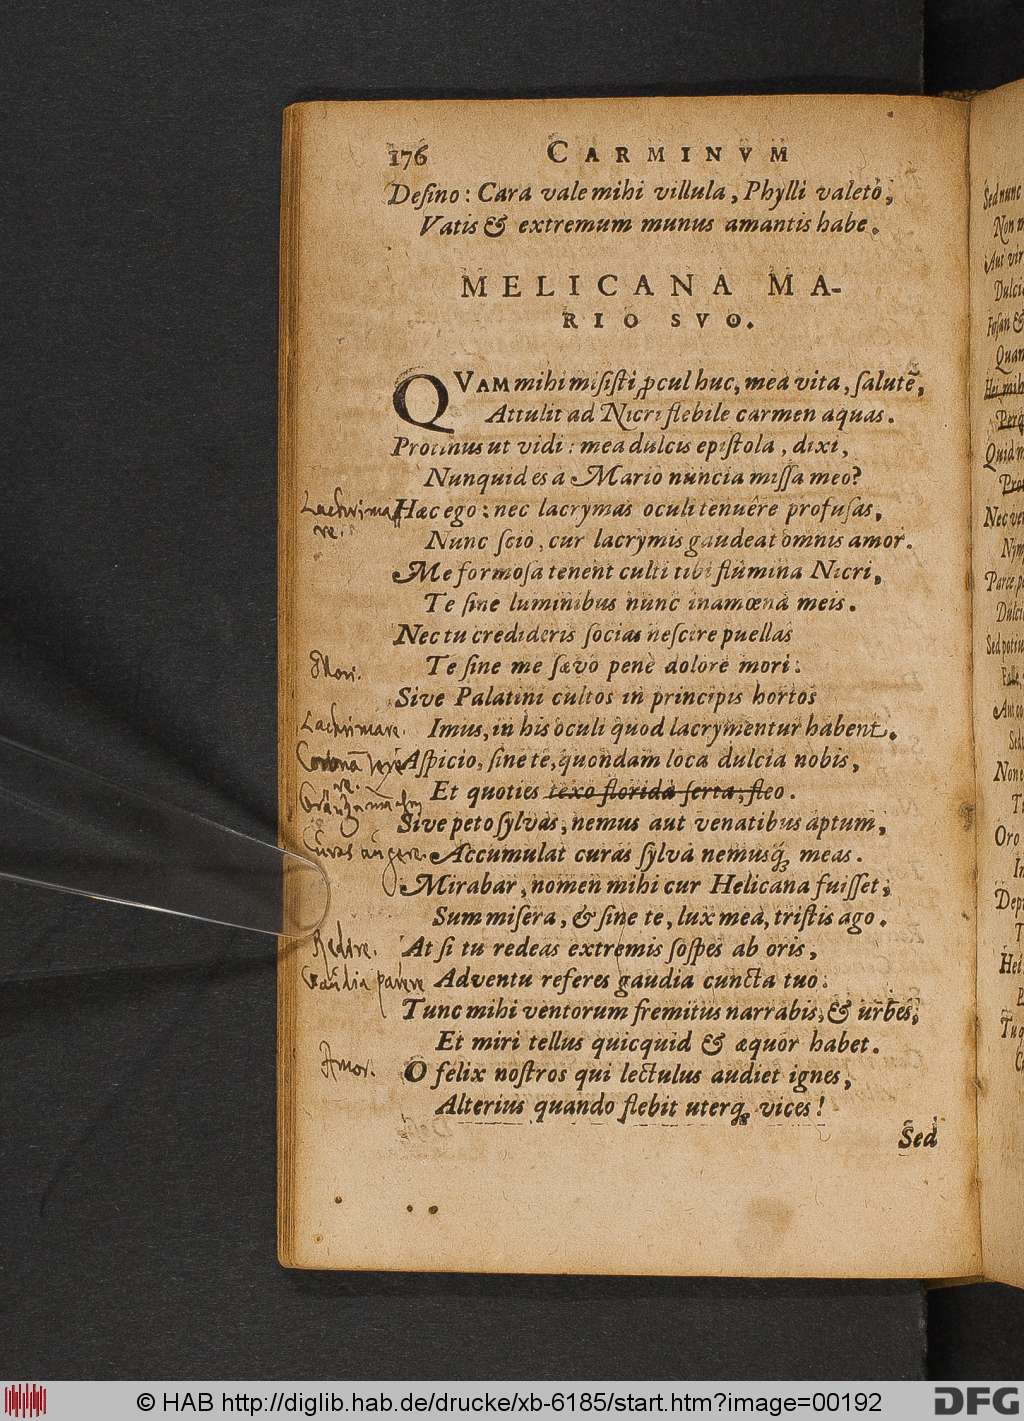 176 CARMINVM
Desino: Cara vale mihi villula, Phylli valeto,
Vatis & extremum munus amantis habe.
MELICANA MA-
RIO SVO.
QVAM mihi misisti ꝓcul huc, mea vita, salutē,
Attulit ad Nicri flebile carmen aquas.
Protinus ut vidi: mea dulcis epistola, dixi,
Nunquid es a Mario nuncia missa meo?
Lachrima
re.
Hæc ego: nec lacrymas oculi tenuêre profusas,
Nunc scio, cur lacrymis gaudeat omnis amor.
Me formosa tenent culti tibi flumina Nicri,
Te sine luminibus nunc inamœna meis.
Nec tu credideris socias nescire puellas
Mori.
Te sine me sævo penè dolore mori:
Sive Palatini cultos in principis hortos
Lachrimare.
Imus, in his oculi quod lacrymentur habent.
Aspicio, sine te, quondam loca dulcia nobis,
Et quoties texo florida serta, fleo.
Sive peto sylvas, nemus aut venatibus aptum,
Curas augere.
Accumulat curas sylva nemusq́; meas.
Mirabar, nomen mihi cur Helicana fuisset;
Sum misera, & sine te, lux mea, tristis ago.
Redire.
At si tu redeas extremis sospes ab oris,
Gaudia parere
Adventu referes gaudia cuncta tuo:
Tunc mihi ventorum fremitus narrabis, & urbes,
Et miri tellus quicquid & æquor habet.
Amor.
O felix nostros qui lectulus audiet ignes,
Alterius quando flebit uterq; vices!
Sed
© HAB http://diglib.hab.de/drucke/xb-6185/start.htm?image=00192
DFG